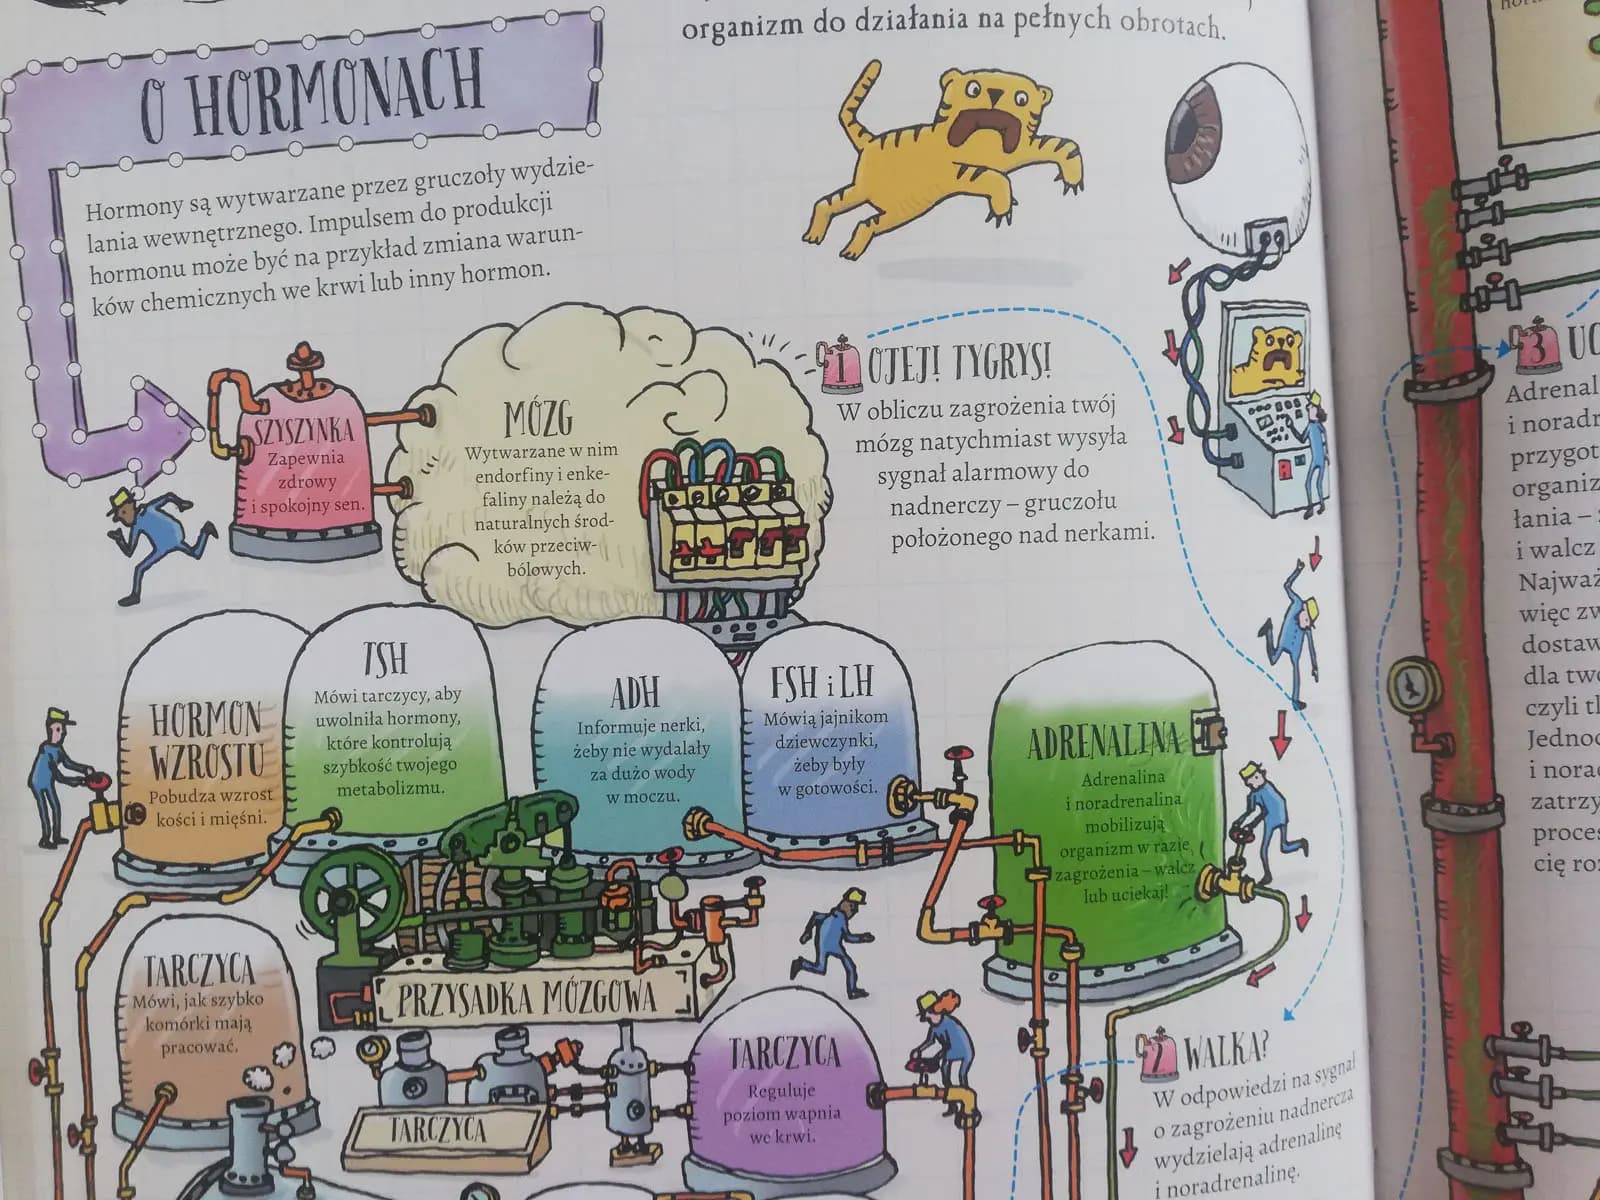 organizm do działania na pełnych obrotach.
O HORMONACH
Hormony są wytwarzane przez gruczoły wydzie-
lania wewnętrznego. Impulsem do produkcji
hormonu może być na przykład zmiana warun-
ków chemicznych we krwi lub inny hormon.
SZYSZYNKA
Zapewnia
zdrowy
i spokojny sen.
MÓZG
Wytwarzane w nim
endorfiny i enke-
faliny należą do
naturalnych środ-
ków przeciw-
bólowych.
1 OJEJ! TYGRYS!
W obliczu zagrożenia twój
mózg natychmiast wysyła
sygnał alarmowy do
nadnerczy – gruczołu
położonego nad nerkami.
HORMON
WZROSTU
Pobudza wzrost
kości i mięśni.
TSH
Mówi tarczycy, aby
uwolniła hormony,
które kontrolują
szybkość twojego
metabolizmu.
ADH
Informuje nerki,
żeby nie wydalały
za dużo wody
w moczu.
FSH i LH
Mówią jajnikom
dziewczynki,
żeby były
w gotowości.
ADRENALINA
Adrenalina
i noradrenalina
mobilizują
organizm w razie
zagrożenia – walcz
lub uciekaj!
PRZYSADKA MÓZGOWA
TARCZYCA
Mówi, jak szybko
komórki mają
pracować.
TARCZYCA
TARCZYCA
Reguluje
poziom wapnia
we krwi.
2 WALKA?
W odpowiedzi na sygnał
o zagrożeniu nadnercza
wydzielają adrenalinę
i noradrenalinę.
3 UC
Adrenal
i noradr
przygot
organiz
łania –
i walcz
Najważ
więc zw
dostaw
dla two
czyli tl
Jednoc
i nora
zatrzy
proces
cię roz